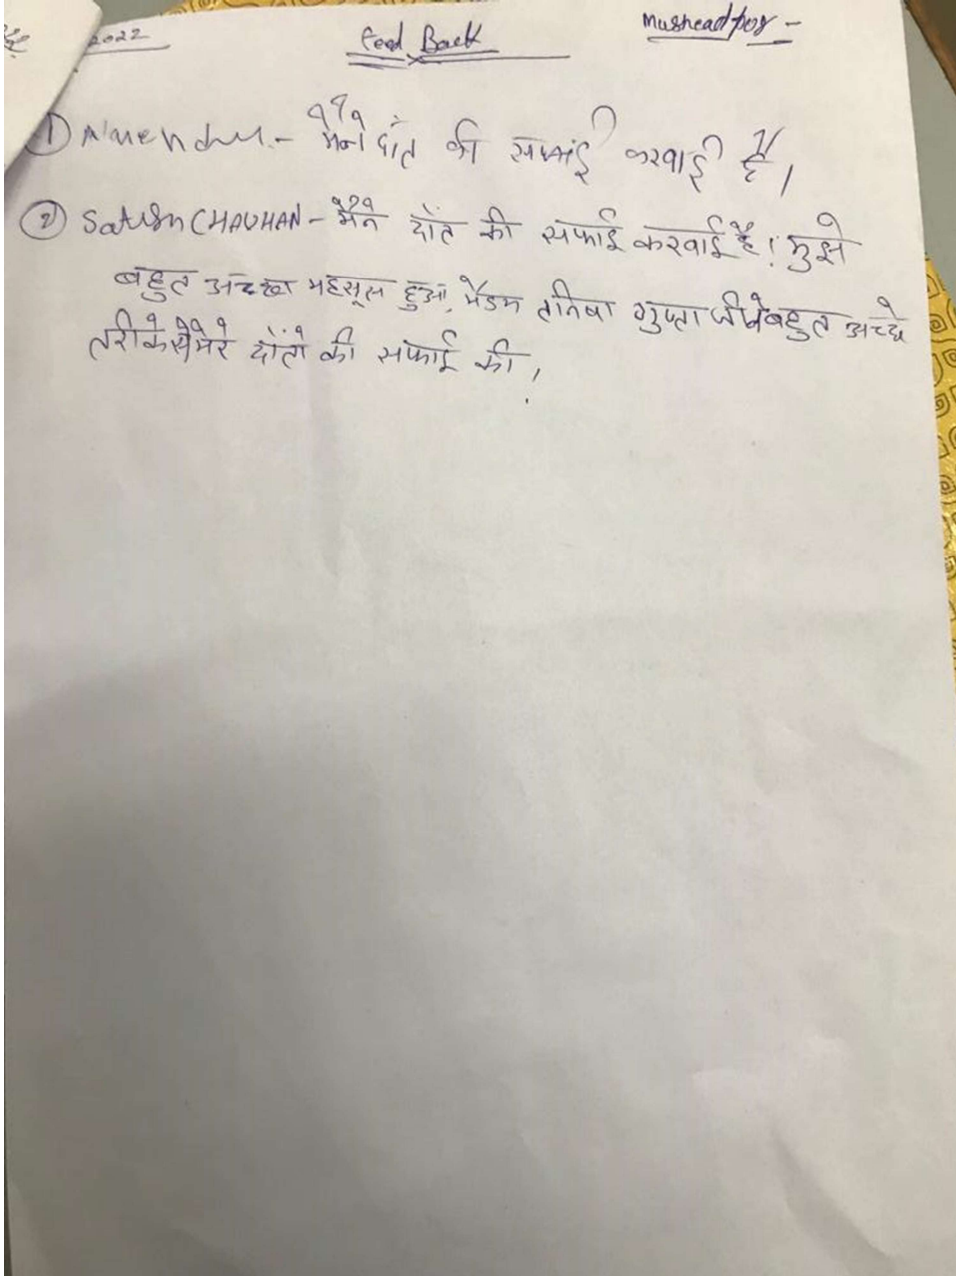 2022 Feed Back Musheadpor -
① - मैने दाँत की सफाई करवाई है।
② Satish CHAUHAN - मैने दाँत की सफाई करवाई है! मुझे
बहुत अच्छा महसूस हुआ, मैडम तनिषा गुप्ता जी ने बहुत अच्छे
तरीके से मेरे दाँतो की सफाई की।